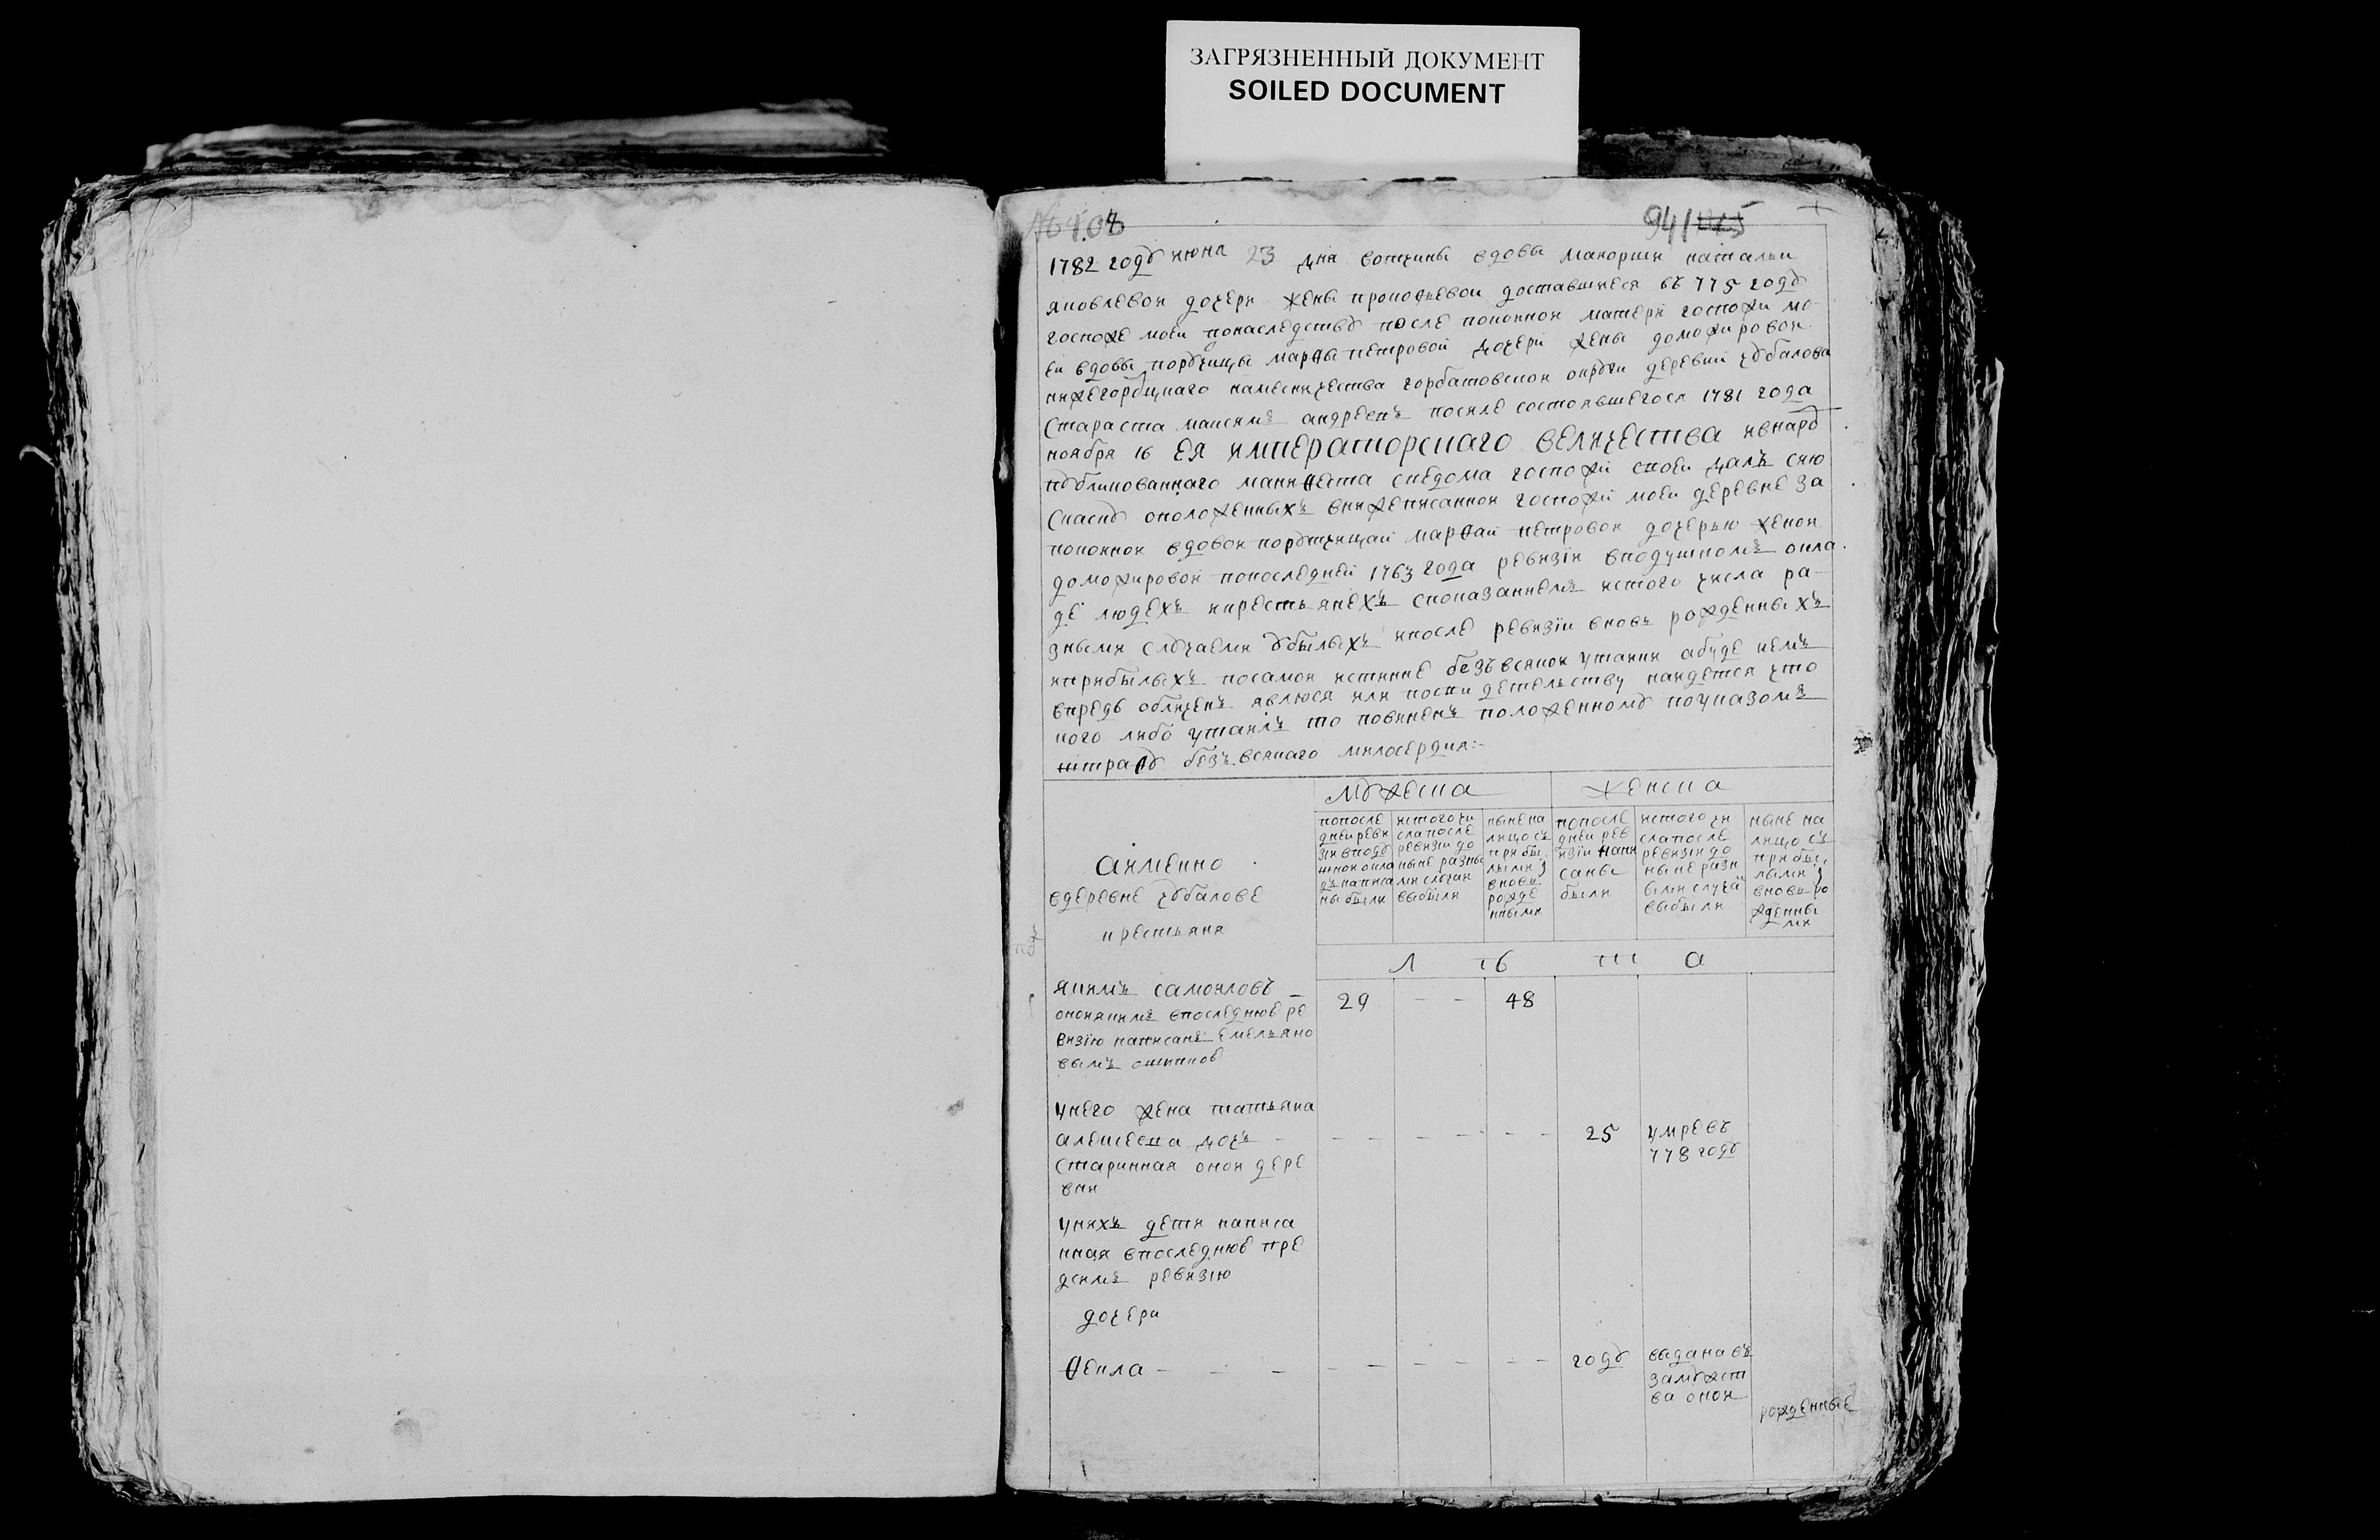 ЗАГРЯЗНЕННЫЙ ДОКУМЕНТ
SOILED DOCUMENT
94/115
1782 году июня 23 дня вотчины вдовы маиорши натальи
яковлевои дочери жены прокофьевои доставшиеся въ 775 году
госпоже моеи понаследству после покоинои матери госпожи мо-
еи вдовы порутчицы марѳы петровой дочери жены доможировои
нижегородцкаго наместничества горбатовскои округи деревни чубалова
Староста максимъ андреевъ после состоявшегося 1781 года
ноября 16 ея императорскаго величества ивнард
публикованнаго маниѳеста сведома госпожи своеи далъ сию
Скаску оположенныхъ внижеписаннои госпожи моеи деревне за
покоинои вдовои порутчицаи марѳаи петровои дочерью женои
доможировои попоследней 1763 года ревизiи вподушномъ окла
де людехъ икрестьянехъ споказаниемъ истого числа ра-
зными случаеми убылыхъ ипосле ревизiи вновь рожденныхъ
иприбылыхъ посамои истинне безъ всякои утаики абуде чемъ
впредь обличенъ явлюся или посвидетельству наидется что
кого либо утаилъ то повиненъ положенному поуказомъ
штраѳу безъ всякаго милосердия:-
Мужеска женска
аимЕнно
вдеревне чубалове
крестьяня
попосле
днеи реви
зiи вподу
шнои окла
дъ написа
ны были
истого чи
сла после
ревизiи до
ныне разны
ми случаи
выбыли
ныне на
лицо съ
прибы
лыми и
вновь
рожде
нными
попосле
днеи рев
изiи напи
саны
были
истого чи
сла после
ревизiи до
ныне разн
ыми случа
выбыли
ныне на
лицо съ
прибы
лыми и
вновь ро
жденны
ми
Л ѣ т а
якимъ самоиловъ - 29 - - 48
онои якимъ впоследнюю ре
визiю написанъ емельяно
вымъ ошипкою
унего жена татьяна
алексеева дочь - - - - - - - 25 умре въ
778 году
старинная онои дере
вни
унихъ дети написа
нная впоследнюю пре
дсимъ ревизiю
дочери
ѳекла - - - - - - - - - году выдана въ
замужст
ва онои
рожденные